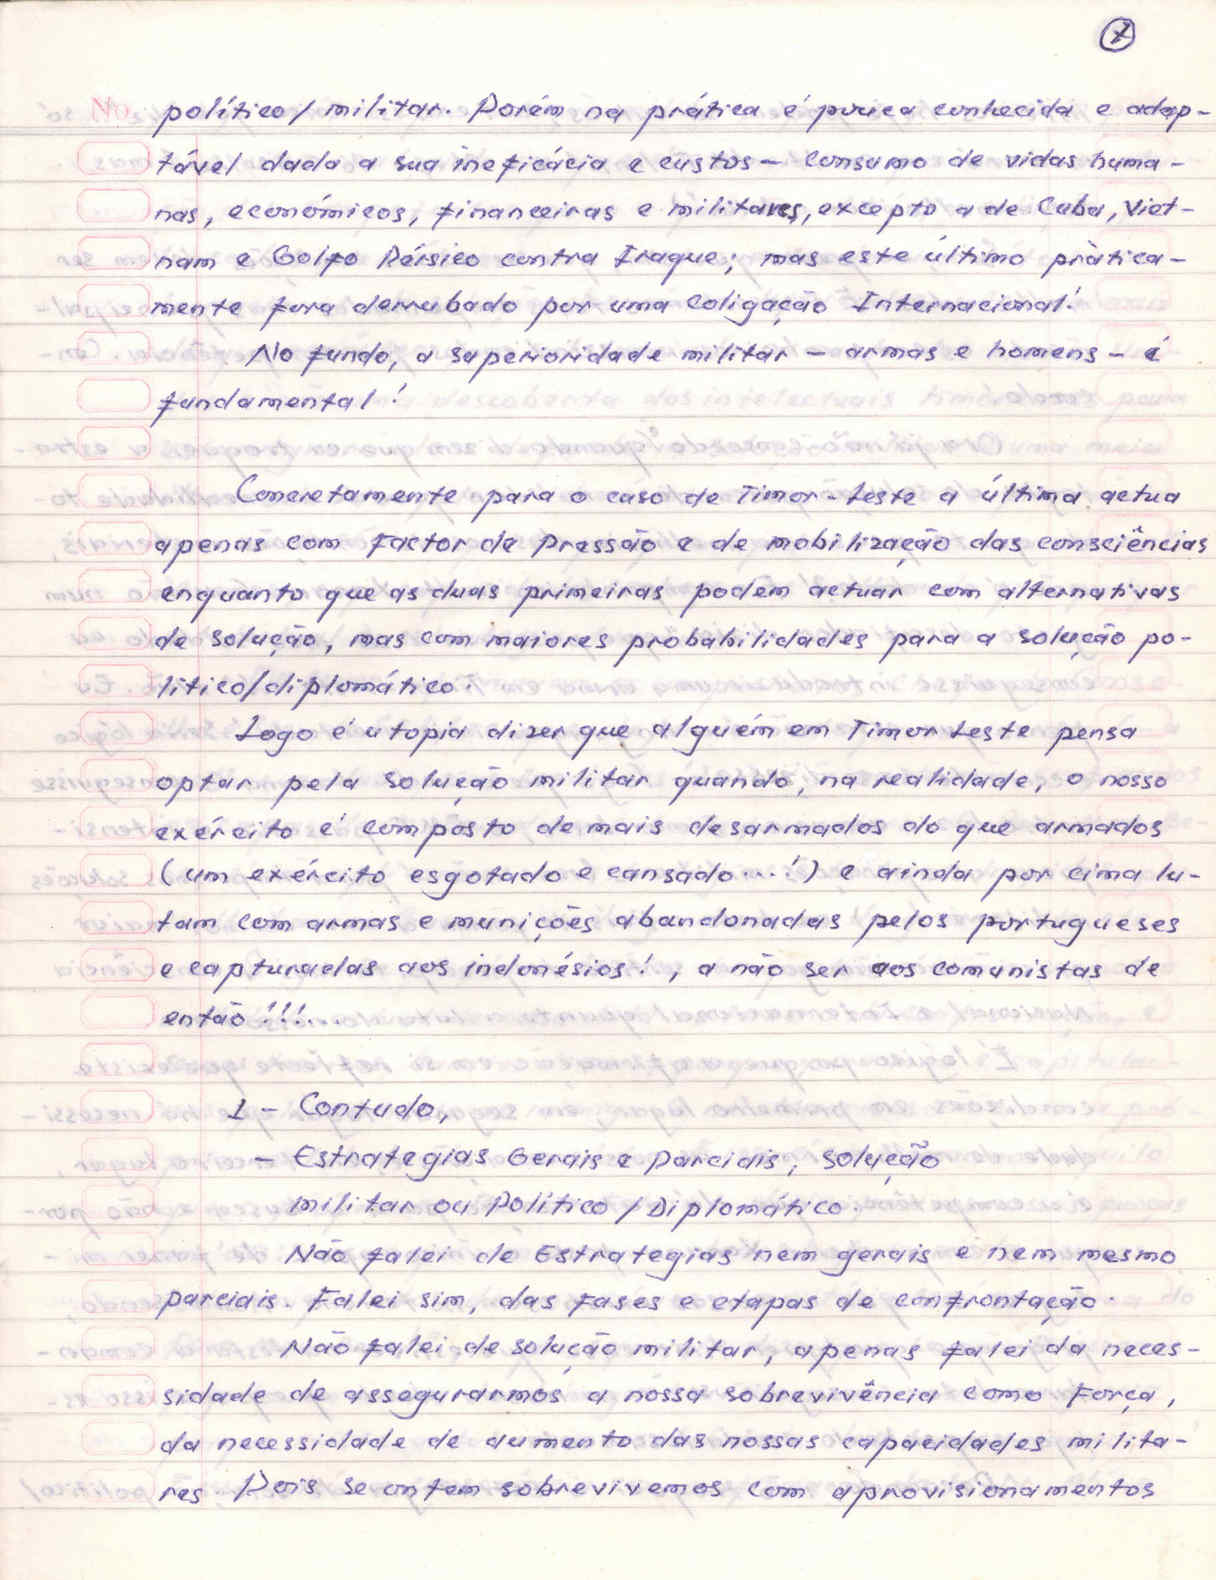 7
político/militar. Porém na prática é pouca conhecida e adap-
tável dada a sua ineficácia e custos - consumo de vidas huma-
nas, económicos, financeiras e militares, excepto a de Cuba, Viet-
nam e Golfo Pérsico contra Iraque; mas este último pràtica-
mente fora derrubado por uma Coligação Internacional!
No fundo, a superioridade militar - armas e homens - é
fundamental!
Concretamente para o caso de Timor-Leste a última actua
apenas com Factor de Pressão e de mobilização das consciências
enquanto que as duas primeiras podem actuar com alternativas
de solução, mas com maiores probabilidades para a solução po-
lítico/diplomático.
Logo é utopia dizer que alguém em Timor Leste pensa
optar pela solução militar quando, na realidade, o nosso
exército é composto de mais desarmados do que armados
(um exército esgotado e cansado...!) e ainda por cima lu-
tam com armas e munições abandonadas pelos portugueses
e capturadas aos indonésios!, a não ser aos comunistas de
então!!!...
1 - Contudo,
- Estrategias Gerais e Parciais, solução
militar ou Político/Diplomático.
Não falei de Estrategias nem gerais e nem mesmo
parciais. Falei sim, das fases e etapas de confrontação.
Não falei de solução militar, apenas falei da neces-
sidade de assegurarmos a nossa sobrevivência como Força,
da necessidade de aumento das nossas capacidades milita-
res. Pois se ontem sobrevivemos com aprovisionamentos